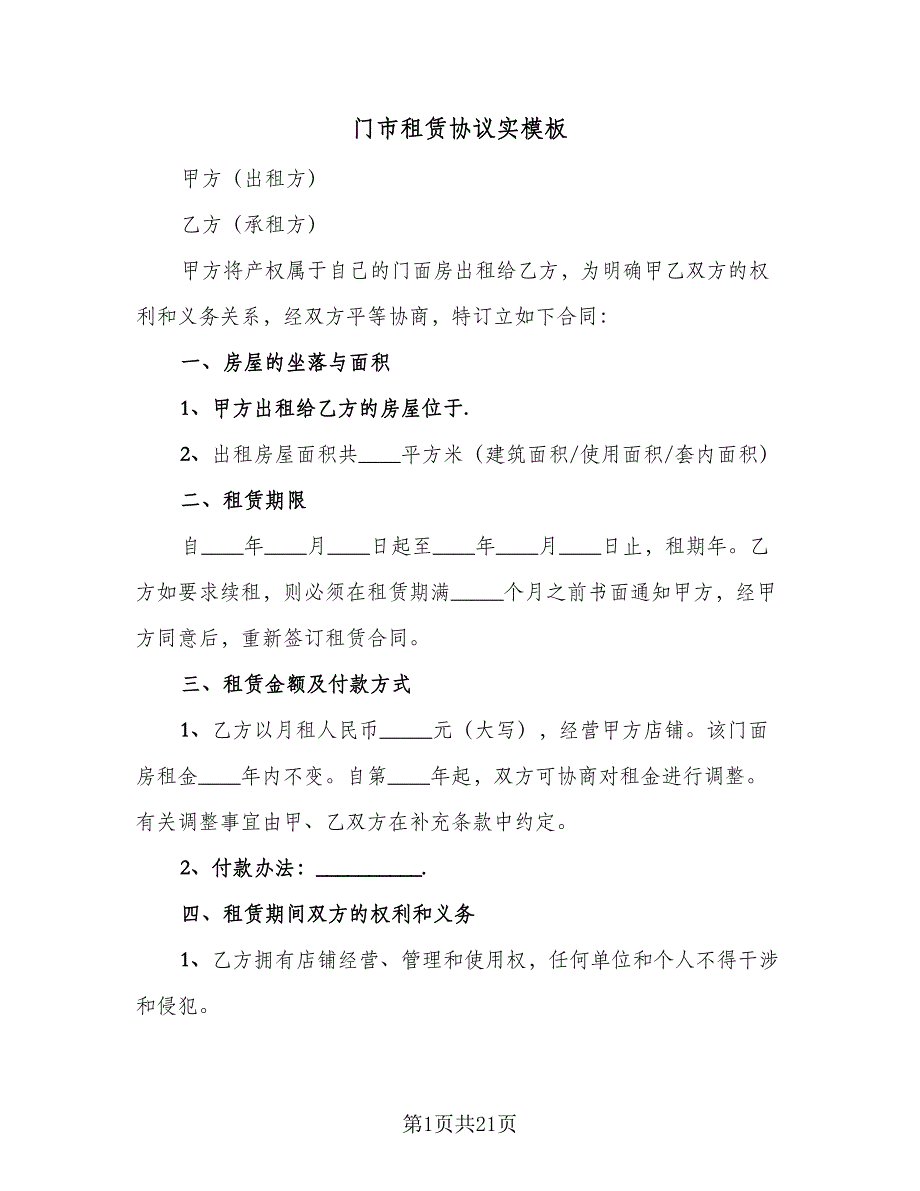 门市租赁协议实模板
甲方（出租方）
乙方（承租方）
甲方将产权属于自己的门面房出租给乙方，为明确甲乙双方的权
利和义务关系，经双方平等协商，特订立如下合同：
一、房屋的坐落与面积
1、甲方出租给乙方的房屋位于.
2、出租房屋面积共____平方米（建筑面积/使用面积/套内面积）
二、租赁期限
自____年____月____日起至____年____月____日止，租期年。乙
方如要求续租，则必须在租赁期满_____个月之前书面通知甲方，经甲
方同意后，重新签订租赁合同。
三、租赁金额及付款方式
1、乙方以月租人民币_____元（大写），经营甲方店铺。该门面
房租金____年内不变。自第____年起，双方可协商对租金进行调整。
有关调整事宜由甲、乙双方在补充条款中约定。
2、付款办法：__________.
四、租赁期间双方的权利和义务
1、乙方拥有店铺经营、管理和使用权，任何单位和个人不得干涉
和侵犯。
第1页共21页